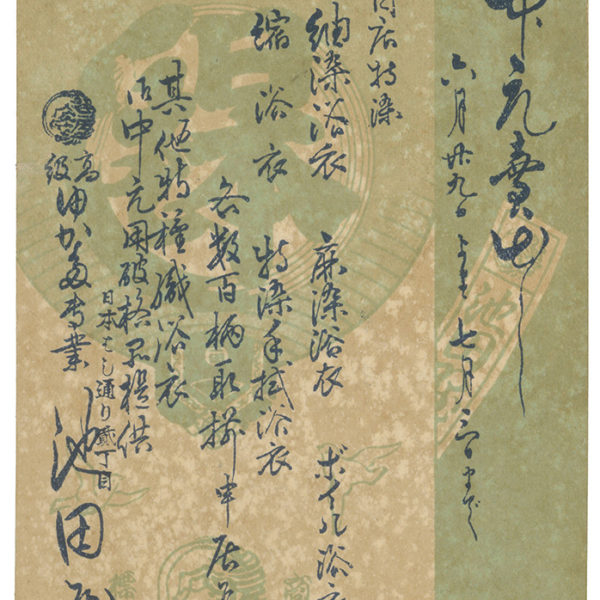 中元賣出し
六月廿九日より七月三日まで
同店特染
紬染浴衣 麻染浴衣 ボイル浴衣
縮浴衣 特染手拭浴衣
各数百柄取揃申居
其他特種織浴衣
御中元用破格品提供
高級ゆかた専業
日本ばし通り貳丁目
池田